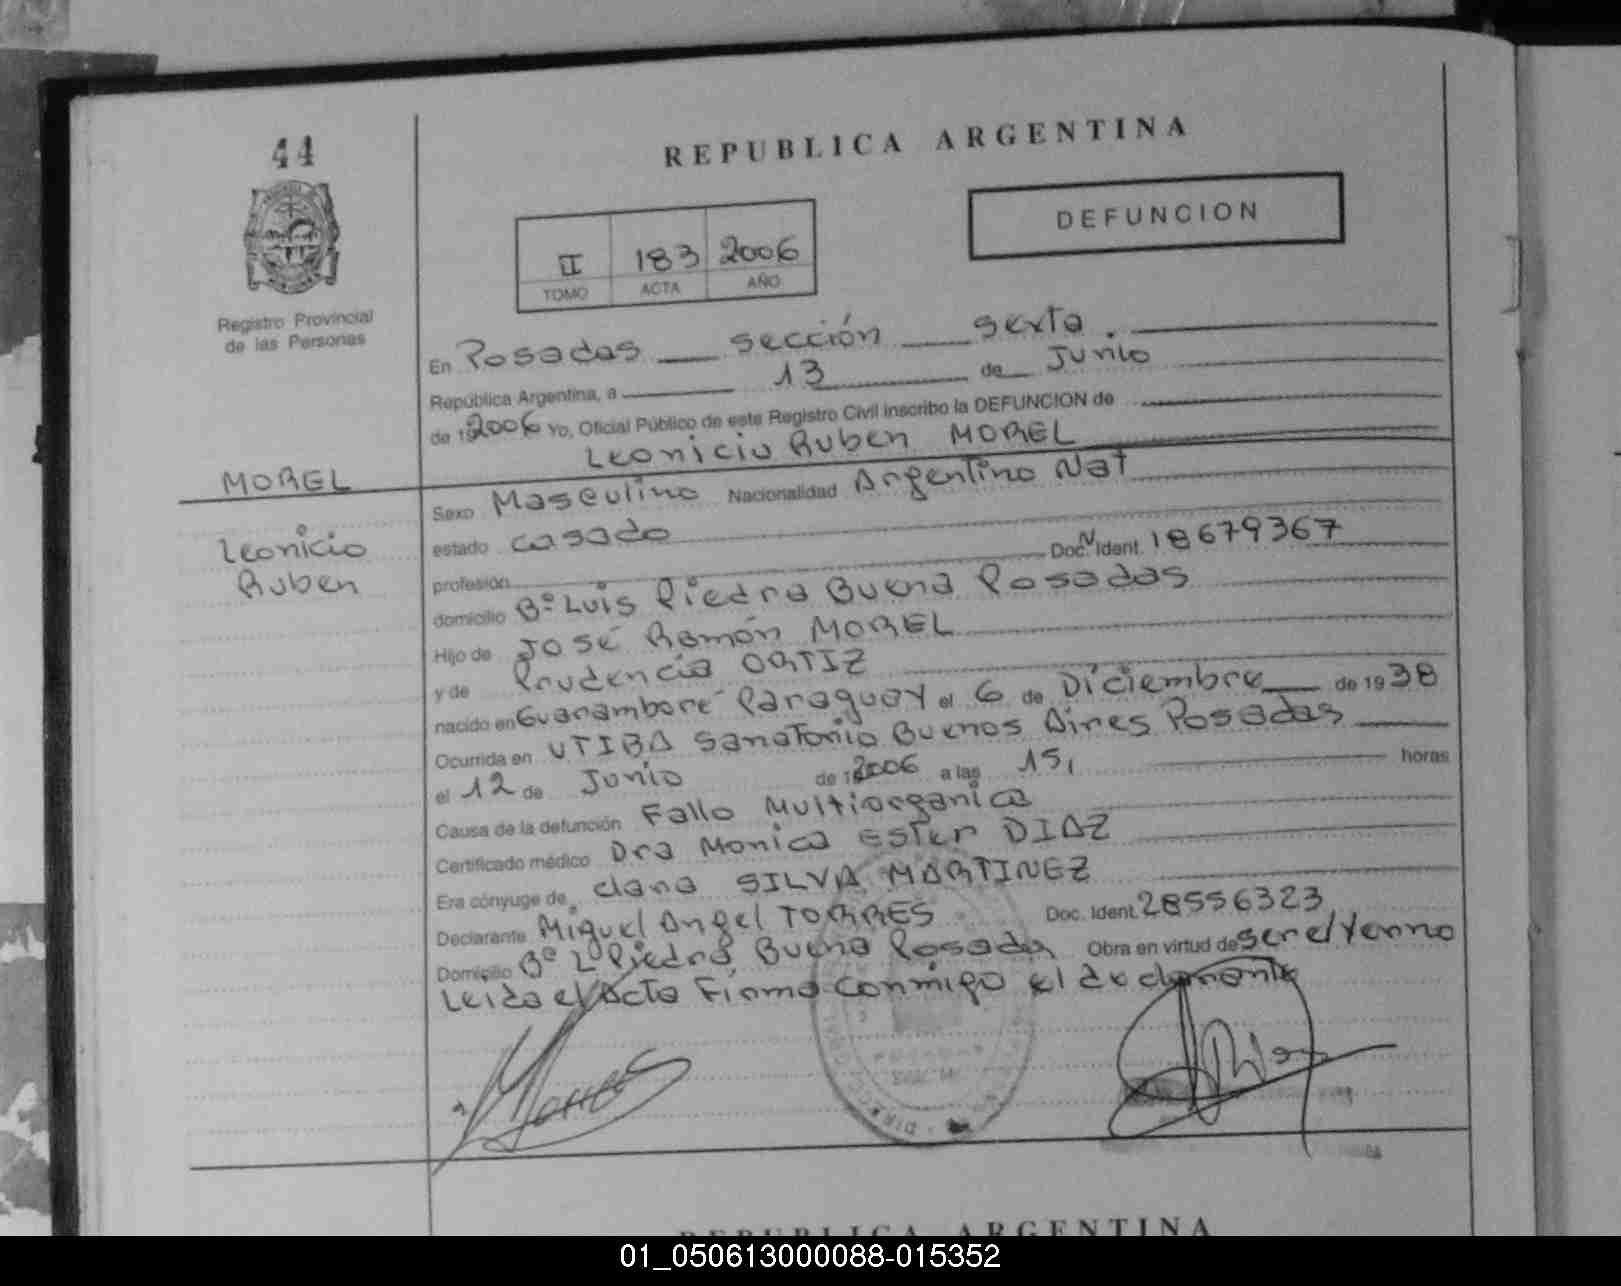 44
REPUBLICA ARGENTINA
DEFUNCION
II 183 2006
TOMO ACTA AÑO
Registro Provincial
de las Personas
En Posadas sección sexta.
República Argentina, a 13 de Junio
de 2006 Yo, Oficial Público de este Registro Civil inscribo la DEFUNCION de
Leonicio Ruben MOREL
MOREL
Leonicio
Ruben
Sexo Masculino Nacionalidad Argentino Nat
estado casado
profesión Doc. N Ident. 18679367
domicilio Bº Luis Piedra Buena Posadas
Hijo de José Ramón MOREL
y de Prudencia ORTIZ
nacido en Guarambaré Paraguay el 6 de Diciembre de 1938
Ocurrida en UTIBA Sanatorio Buenos Aires Posadas
el 12 de Junio de 2006 a las 15, horas
Causa de la defunción Fallo Multiorganica
Certificado médico Dra Monica Ester DIAZ
Era cónyuge de clara SILVA MARTINEZ
Declarante Miguel Angel TORRES Doc. Ident. 28556323
Domicilio Bº Lº Piedra Buena Posadas Obra en virtud de ser el Yerno
Leida el Acta Firma conmigo el declarante
REPUBLICA ARGENTINA
01_050613000088-015352